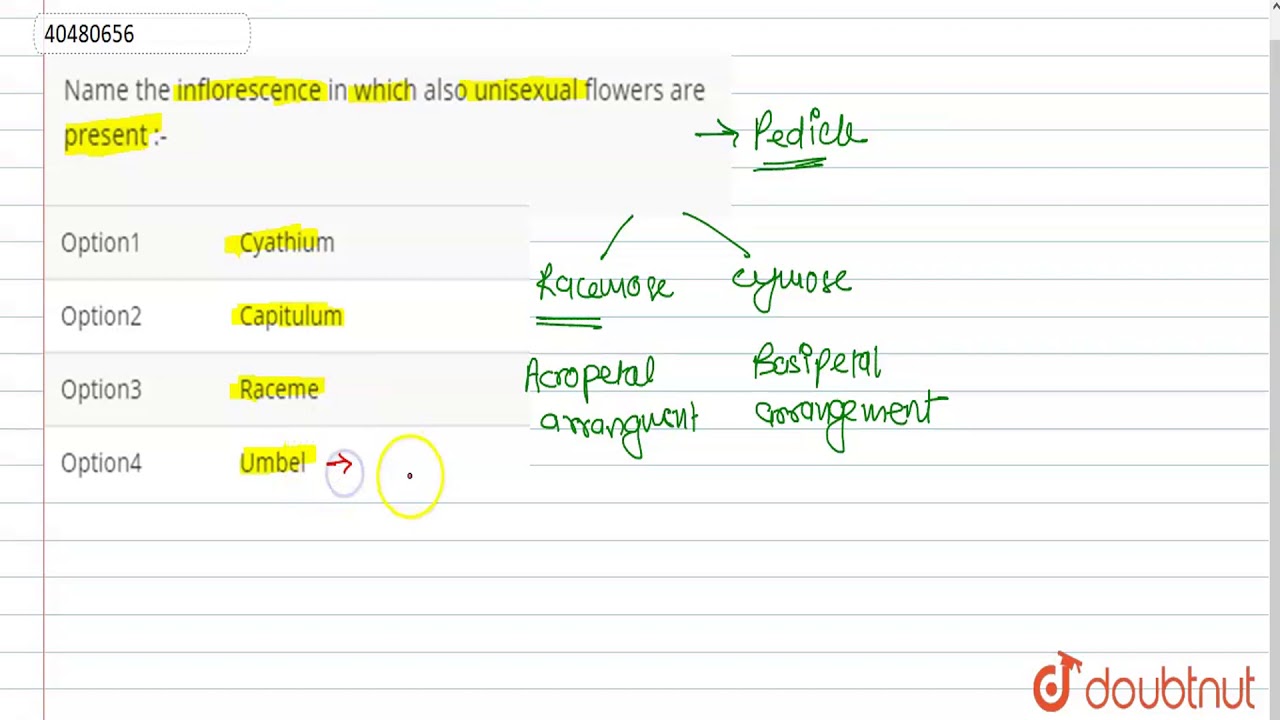 40480656
Name the inflorescence in which also unisexual flowers are
present :-
→ Pedicle
Option1 Cyathium
Option2 Capitulum
Option3 Raceme
Option4 Umbel →
Racemose cymose
Acropetal Basipetal
arrangment arrangement
doubtnut